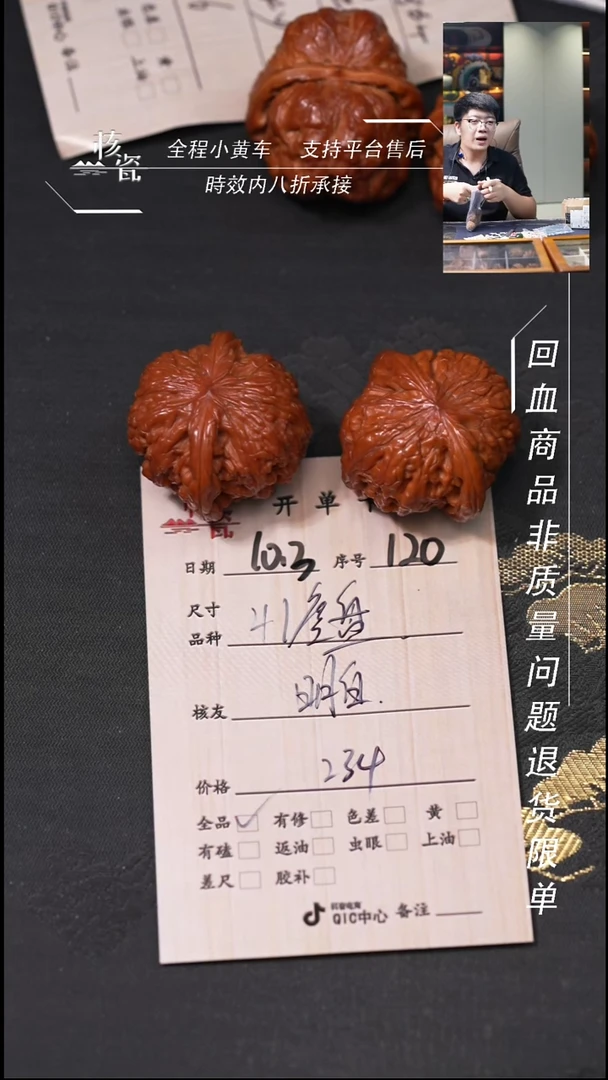 核瓷
全程小黄车 支持平台售后
時效内八折承接
回血商品非质量问题退货限单
开单
日期 10.3 序号 120
尺寸
品种 41虎盘
核友 明白.
价格 234
全品 有修 色差 黄
有磕 返油 虫眼 上油
差尺 胶补
QIC中心 备注